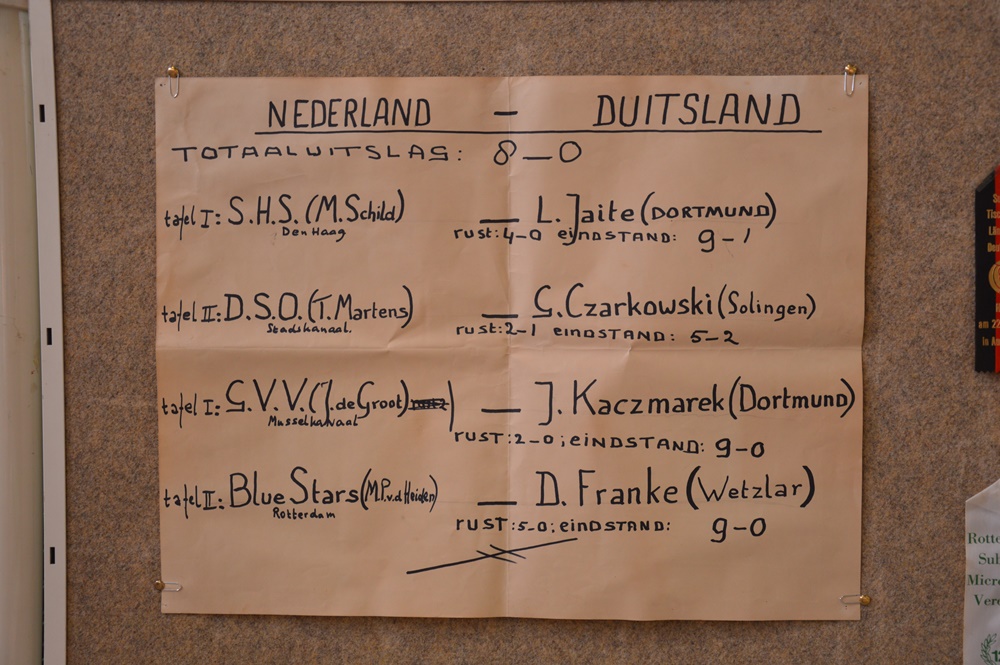 NEDERLAND — DUITSLAND
TOTAALUITSLAG: 8—0
tafel I: S.H.S. (M.Schild) — L. Jaite (DORTMUND)
Den Haag
rust: 4-0 eiNDSTAND: 9-1
tafel II: D.S.O. (T.Martens) — G.Czarkowski (Solingen)
Stadskanaal.
rust: 2-1 eiNDSTAND: 5-2
tafel I: G.V.V. (J.de Groot) — J. Kaczmarek (Dortmund)
Musselkanaal
rUST: 2-0; eiNDSTAND: 9-0
tafel II: Blue Stars (M.P.v.d Heiden) — D. Franke (Wetzlar)
Rotterdam
rUST: 5-0; eiNDSTAND: 9-0
Rotte
Sul
Micro
Vere